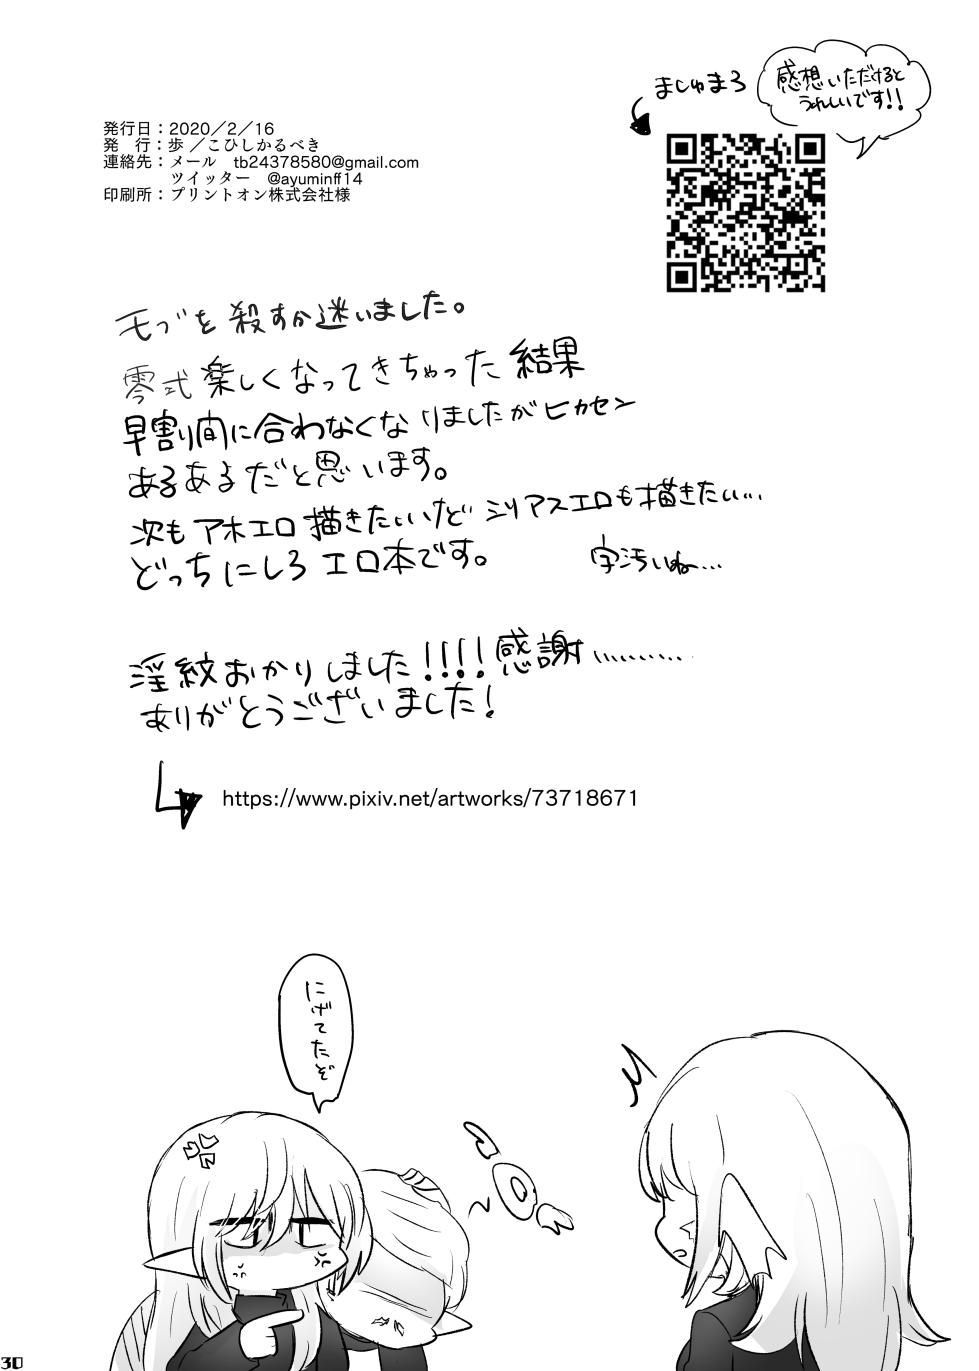 ましゅまろ
感想いただけると
うれしいです!!
発行日：2020／2／16
発　行：歩 ／こひしかるべき
連絡先：メール　tb24378580@gmail.com
ツイッター　@ayuminff14
印刷所：プリントオン株式会社様
モブを殺すか迷いました。
零式楽しくなってきちゃった結果
早割り間に合わなくなりましたがヒカセン
あるあるだと思います。
次もアホエロ描きたいけどシリアスエロも描きたい…
どっちにしろエロ本です。
字汚いね…
淫紋おかりしました!!!!感謝…………
ありがとうございました!
https://www.pixiv.net/artworks/73718671
にげてたぞ
30